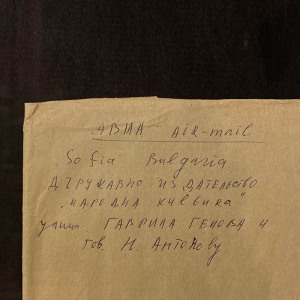 АВИА AIR-MAIL
Sofia Bulgaria
ДЪРЖАВНО ИЗДАТЕЛЬСТВО
"НАРОДНА КУЛТУРА"
улица ГАВРИЛА ГЕНОВА 4
тов. Н. АНТОНОВУ